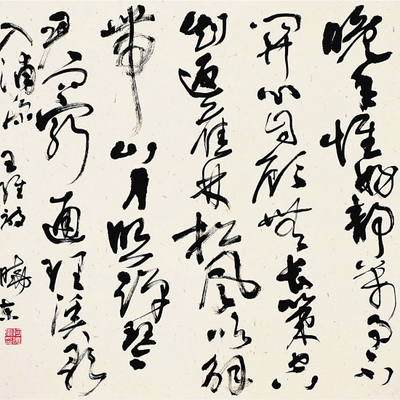 晚年惟好靜萬事不
關心自顧無長策空
知返舊林松風吹解
帶山月照彈琴
君問窮通理漁歌
入浦深 王維詩